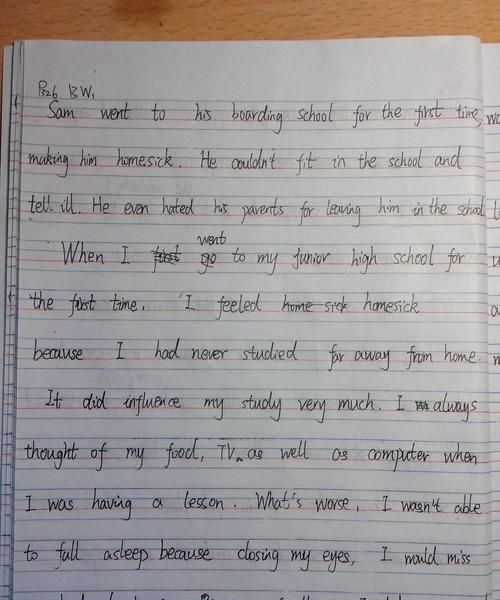 P26 BW1
Sam went to his boarding school for the first time,
making him homesick. He couldn't fit in the school and
tell ill. He even hated his parents for leaving him in the school
When I first go went to my junior high school for
the first time, I feeled home sick homesick
because I had never studied far away from home.
It did influence my study very much. I always
thought of my food, TV as well as computer when
I was having a lesson. What's worse, I wasn't able
to fall asleep because closing my eyes, I would miss